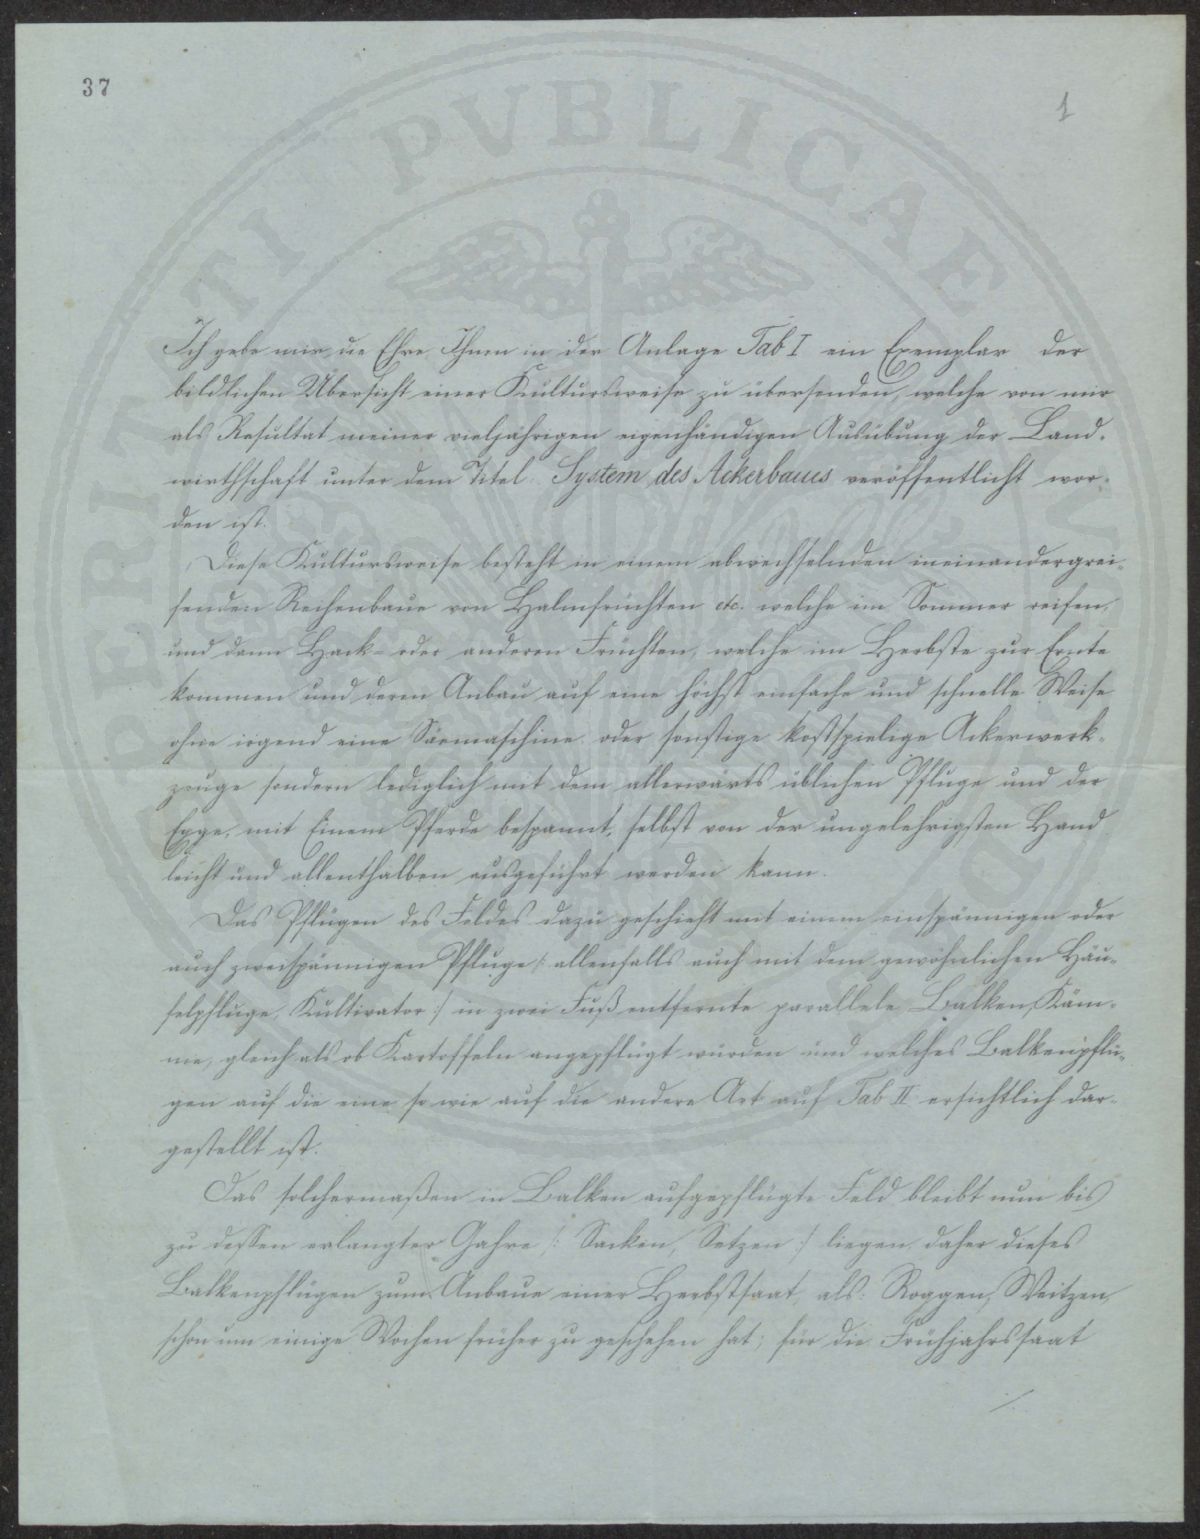 37
1
Ich gebe mir die Ehre Ihnen in der Anlage Tab I ein Exemplar der
bildlichen Übersicht einer Kultursweise zu übersenden, welche von mir
als Resultat meiner vieljährigen eigenhändigen Ausübung der Land-
wirthschaft unter dem Titel: System des Ackerbaues veröffentlicht wor-
den ist.
Diese Kultursweise besteht in einem abwechselnden ineinandergrei-
fenden Reihenbaue von Halmfrüchten etc. welche im Sommer reifen,
und dann Hack- oder anderen Früchten, welche im Herbste zur Ernte
kommen und deren Anbau auf eine höchst einfache und schnelle Weise
ohne irgend eine Säemaschine oder sonstige kostspielige Ackerwerk-
zeuge sondern lediglich mit dem allerwärts üblichen Pfluge und der
Egge, mit Einem Pferde bespannt, selbst von der ungelehrigsten Hand
leicht und allenthalben ausgeführt werden kann.
Das Pflügen des Feldes dazu geschieht mit einem einspännigen oder
auch zweispännigen Pfluge /: allenfalls auch mit dem gewöhnlichen Häu-
felpfluge, Kultivator :/ in zwei Fuß entfernte parallele Balken, Käm-
me, gleich als ob Kartoffeln angepflügt würden und welches Balkenpflü-
gen auf die eine so wie auf die andere Art auf Tab II ersichtlich dar-
gestellt ist.
Das solchermaßen in Balken aufgepflügte Feld bleibt nun bis
zu dessen erlangter Gahre /: Sacken, Setzen :/ liegen, daher dieses
Balkenpflügen zum Anbaue einer Herbstsaat, als: Roggen, Weitzen,
schon um einige Wochen früher zu geschehen hat; für die Frühjahrssaat
./.
PERITI PVBLICAE